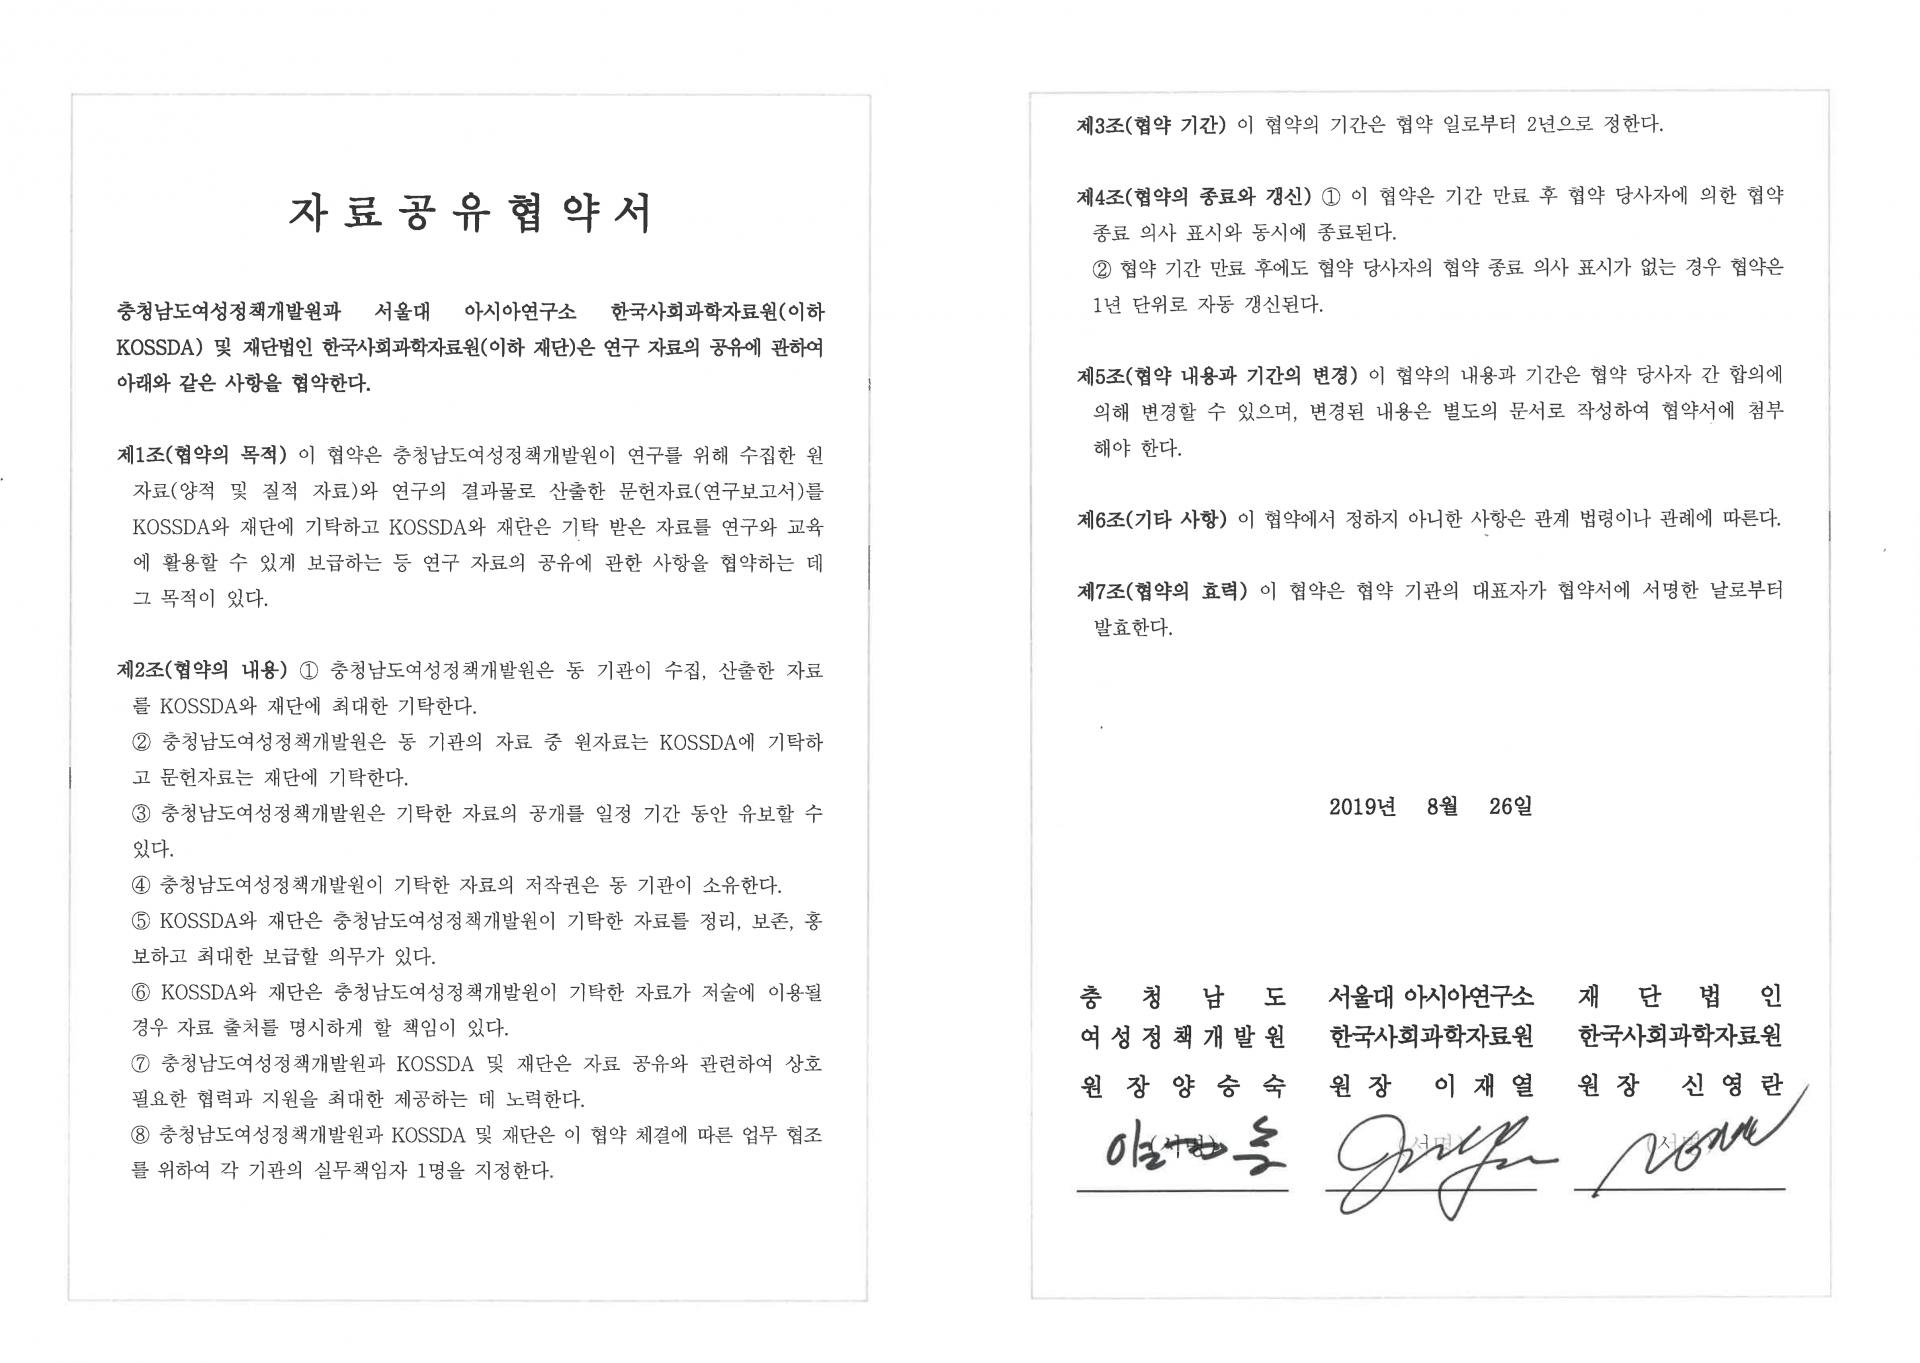 자료공유협약서
충청남도여성정책개발원과 서울대 아시아연구소 한국사회과학자료원(이하
KOSSDA) 및 재단법인 한국사회과학자료원(이하 재단)은 연구 자료의 공유에 관하여
아래와 같은 사항을 협약한다.
제1조(협약의 목적) 이 협약은 충청남도여성정책개발원이 연구를 위해 수집한 원
자료(양적 및 질적 자료)와 연구의 결과물로 산출한 문헌자료(연구보고서)를
KOSSDA와 재단에 기탁하고 KOSSDA와 재단은 기탁 받은 자료를 연구와 교육
에 활용할 수 있게 보급하는 등 연구 자료의 공유에 관한 사항을 협약하는 데
그 목적이 있다.
제2조(협약의 내용) ① 충청남도여성정책개발원은 동 기관이 수집, 산출한 자료
를 KOSSDA와 재단에 최대한 기탁한다.
② 충청남도여성정책개발원은 동 기관의 자료 중 원자료는 KOSSDA에 기탁하
고 문헌자료는 재단에 기탁한다.
③ 충청남도여성정책개발원은 기탁한 자료의 공개를 일정 기간 동안 유보할 수
있다.
④ 충청남도여성정책개발원이 기탁한 자료의 저작권은 동 기관이 소유한다.
⑤ KOSSDA와 재단은 충청남도여성정책개발원이 기탁한 자료를 정리, 보존, 홍
보하고 최대한 보급할 의무가 있다.
⑥ KOSSDA와 재단은 충청남도여성정책개발원이 기탁한 자료가 저술에 이용될
경우 자료 출처를 명시하게 할 책임이 있다.
⑦ 충청남도여성정책개발원과 KOSSDA 및 재단은 자료 공유와 관련하여 상호
필요한 협력과 지원을 최대한 제공하는 데 노력한다.
⑧ 충청남도여성정책개발원과 KOSSDA 및 재단은 이 협약 체결에 따른 업무 협조
를 위하여 각 기관의 실무책임자 1명을 지정한다.
제3조(협약 기간) 이 협약의 기간은 협약 일로부터 2년으로 정한다.
제4조(협약의 종료와 갱신) ① 이 협약은 기간 만료 후 협약 당사자에 의한 협약
종료 의사 표시와 동시에 종료된다.
② 협약 기간 만료 후에도 협약 당사자의 협약 종료 의사 표시가 없는 경우 협약은
1년 단위로 자동 갱신된다.
제5조(협약 내용과 기간의 변경) 이 협약의 내용과 기간은 협약 당사자 간 합의에
의해 변경할 수 있으며, 변경된 내용은 별도의 문서로 작성하여 협약서에 첨부
해야 한다.
제6조(기타 사항) 이 협약에서 정하지 아니한 사항은 관계 법령이나 관례에 따른다.
제7조(협약의 효력) 이 협약은 협약 기관의 대표자가 협약서에 서명한 날로부터
발효한다.
2019년 8월 26일
충청남도
여성정책개발원
원장양승숙
(서명)
서울대 아시아연구소
한국사회과학자료원
원장 이재열
(서명)
재단법인
한국사회과학자료원
원장 신영란
(서명)